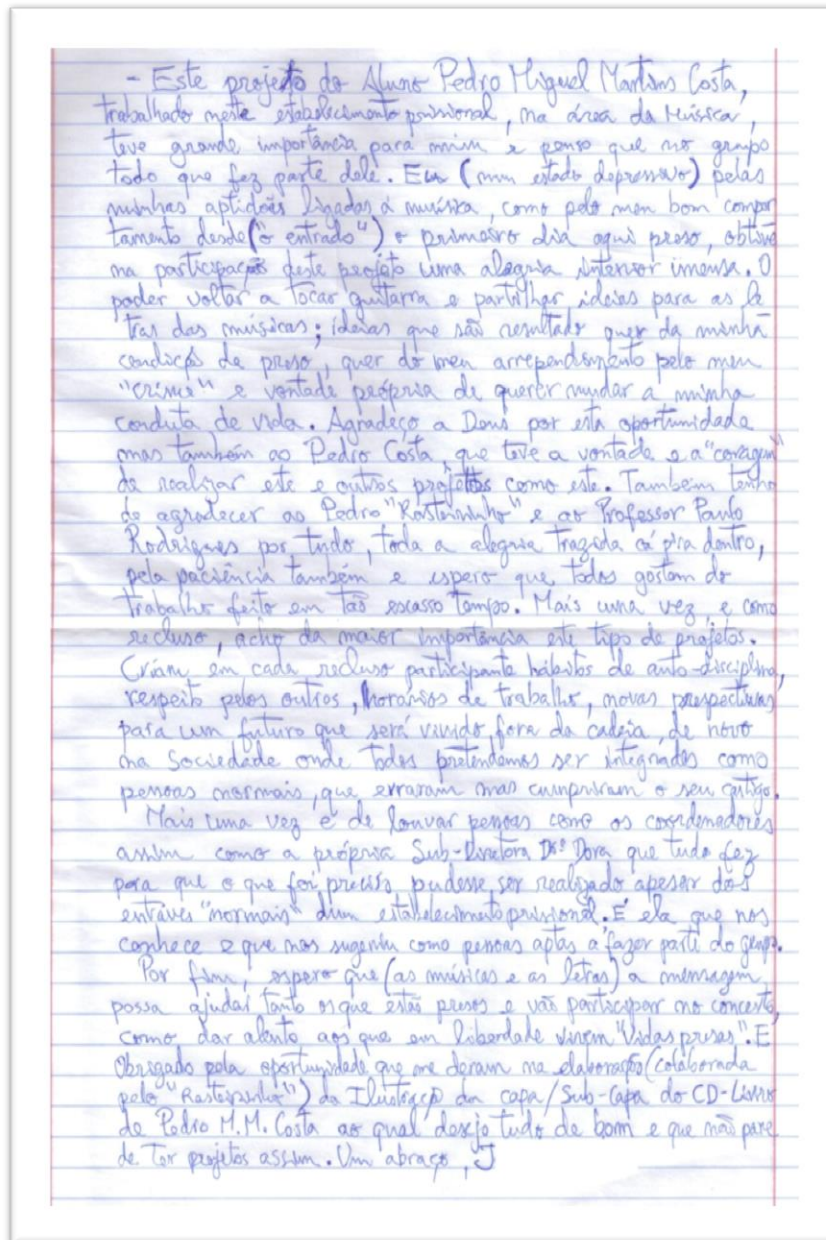 - Este projeto do Aluno Pedro Miguel Martins Costa,
trabalhado neste estabelecimento prisional, na área da Música,
teve grande importância para mim e penso que no grupo
todo que fez parte dele. Eu (num estado depressivo) pelas
minhas aptidões ligadas à música, como pelo meu bom compor
tamento desde ("o entrado") o primeiro dia aqui preso, obtive
na participação deste projeto uma alegria interior imensa. O
poder voltar a tocar guitarra e partilhar ideias para as le
tras das músicas; ideias que são resultado quer da minha
condição de preso, quer do meu arrependimento pelo meu
"crime" e vontade própria de querer mudar a minha
conduta de vida. Agradeço a Deus por esta oportunidade
mas também ao Pedro Costa, que teve a vontade e a "coragem"
de realizar este e outros projettos como este. Também tenho
de agradecer ao Pedro "Rasteirinho" e ao Professor Paulo
Rodrigues por tudo, toda a alegria trazida cá p'ra dentro,
pela paciência também e espero que todos gostam do
trabalho feito em tão escasso tempo. Mais uma vez, e como
recluso, acho da maior importância este tipo de projetos.
Criam em cada recluso participante hábitos de auto-disciplina,
respeito pelos outros, horários de trabalho, novas prespectivas
para um futuro que será vivido fora da cadeia, de novo
na Sociedade onde todos pretendemos ser integrados como
pessoas normais, que erraram mas cumpriram o seu castigo.
Mais uma vez é de louvar pessoas como os coordenadores
assim como a própria Sub-Diretora Drª Dora que tudo fez
para que o que foi preciso pudesse ser realizado apesar dos
entraves "normais" dum estabelecimento prisional. É ela que nos
conhece e que nos sugeriu como pessoas aptas a fazer parte do grupo.
Por fim, espero que (as músicas e as letras) a mensagem
possa ajudar tanto os que estão presos e vão participar no concerto,
como dar alento aos que em liberdade vivem "Vidas presas". E
Obrigado pela oportunidade que me deram na elaboração (colaborada
pelo "Rasteirinho") da Ilustração da capa/Sub-Capa do CD-Livro
de Pedro M.M. Costa ao qual desejo tudo de bom e que não pare
de Ter projetos assim. Um abraço, J